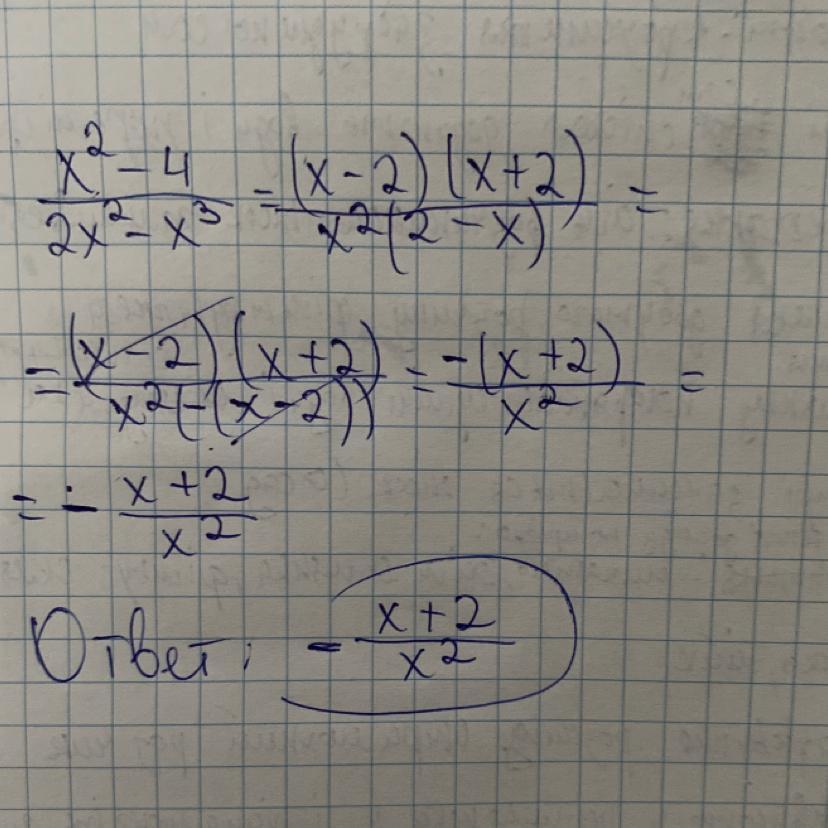 (x² - 4)/(2x² - x³) = ((x - 2)(x + 2))/(x²(2 - x)) =
= ((x - 2)(x + 2))/(x²(-(x - 2))) = (-(x + 2))/x² =
= - (x + 2)/x²
Ответ: - (x + 2)/x²